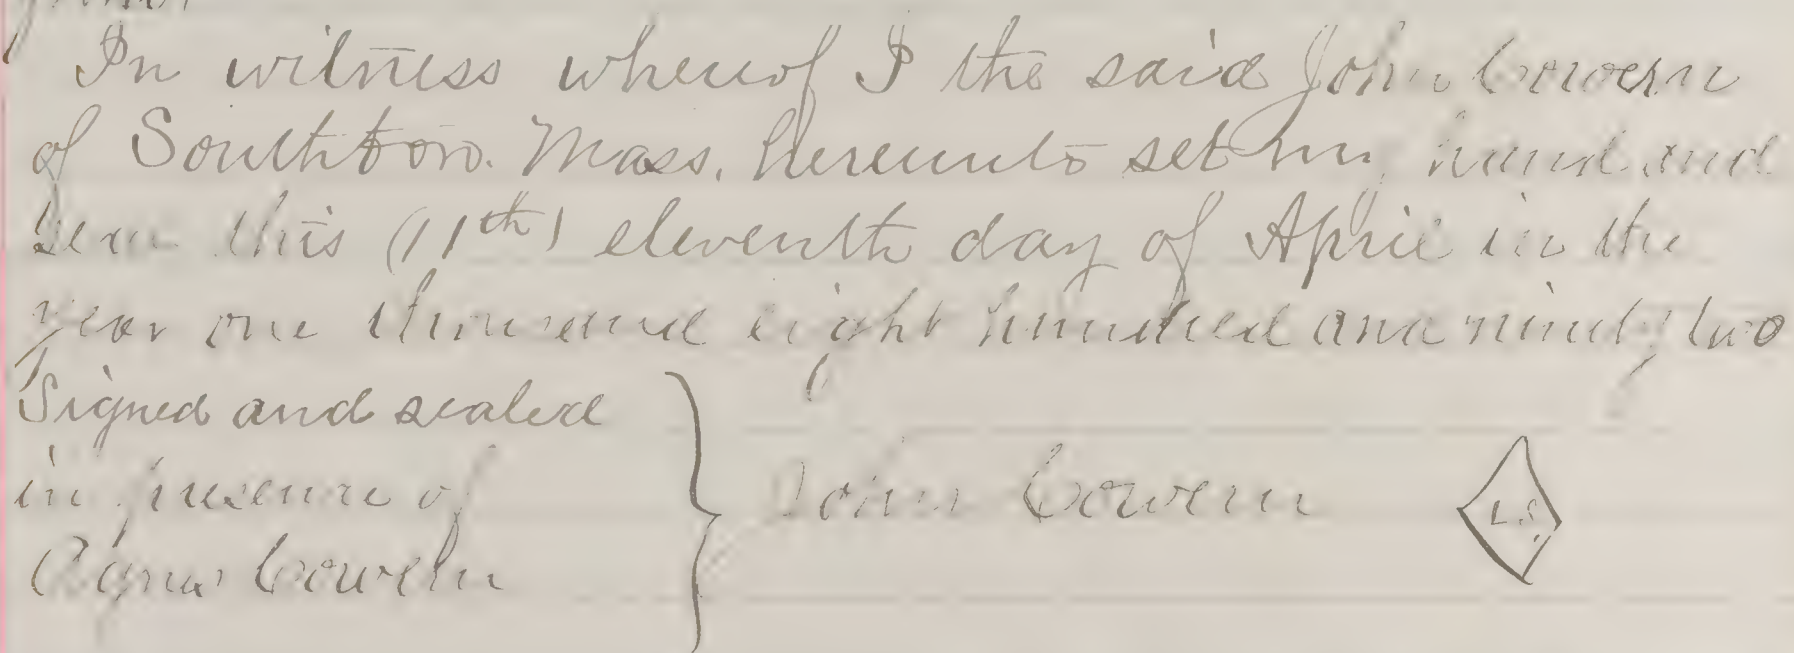 In witness whereof I the said John Cowern
of Southboro. Mass. hereunto set my hand and
seal this (11th) eleventh day of April in the
year one thousand eight hundred and ninety two
Signed and sealed
in presence of
Agnes Cowern
John Cowern
L.S.